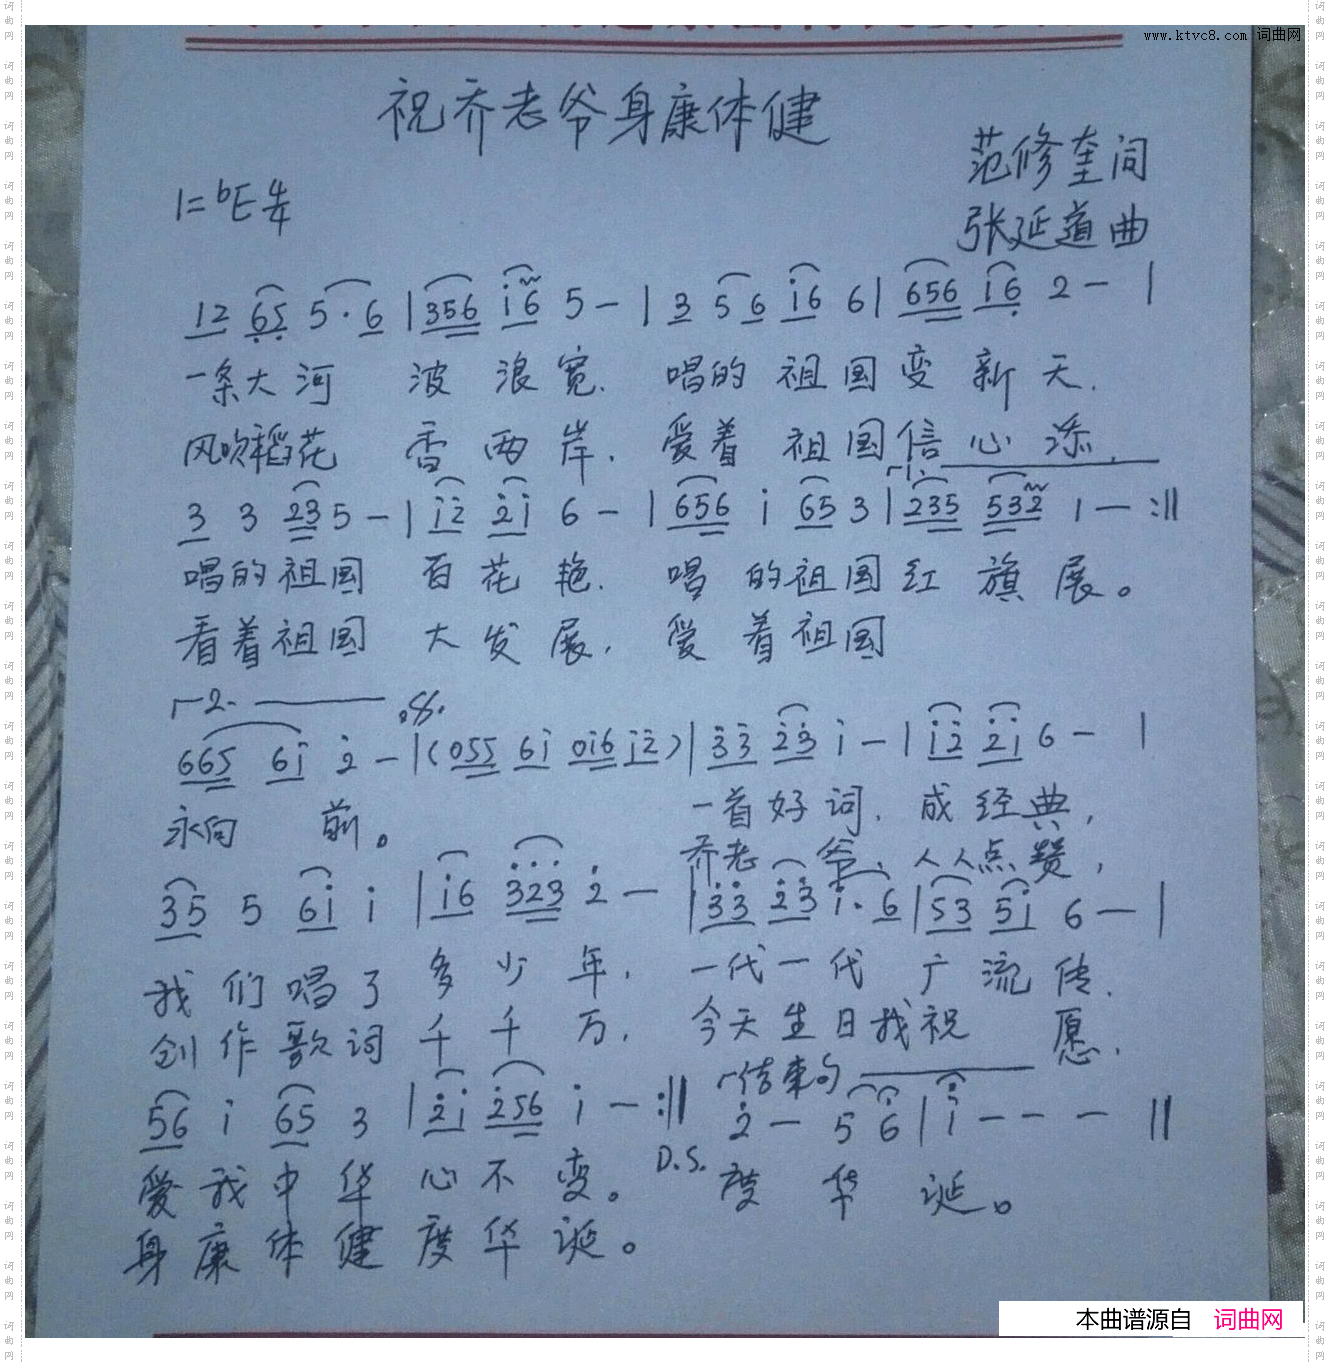 www.ktvc8.com 词曲网
祝乔老爷身康体健
范修奎词
张延道曲
1=bE 4/4
12 65 5·6 | 356 i6 5 - | 3 5 6 i6 6 | 656 i6 2 - |
一条大河 波浪宽. 唱的祖国变新天.
风吹稻花 香两岸. 爱着祖国信心添.
3 3 23 5 - | i2 2i 6 - | 656 i 65 3 | 1. 235 532 1 - :||
唱的祖国 百花艳. 唱的祖国红旗展。
看着祖国 大发展. 爱着祖国
2.
665 6i 2 - | (055 6i 0i6 i2) | 33 23 i - | i2 2i 6 - |
永向前。 一首好词. 成经典,
乔老爷、人人点赞,
35 5 6i i | i6 323 2 - | 33 23 i· 6 | 53 5i 6 - |
我们唱了 多少年. 一代一代 广流传.
创作歌词 千千万. 今天生日我祝愿.
结束句
56 i 65 3 | 2i 256 i - :|| 2 - 5 6 | i - - - ||
D.S.
爱我中华 心不变。 度华诞。
身康体健 度华诞。
本曲谱源自 词曲网